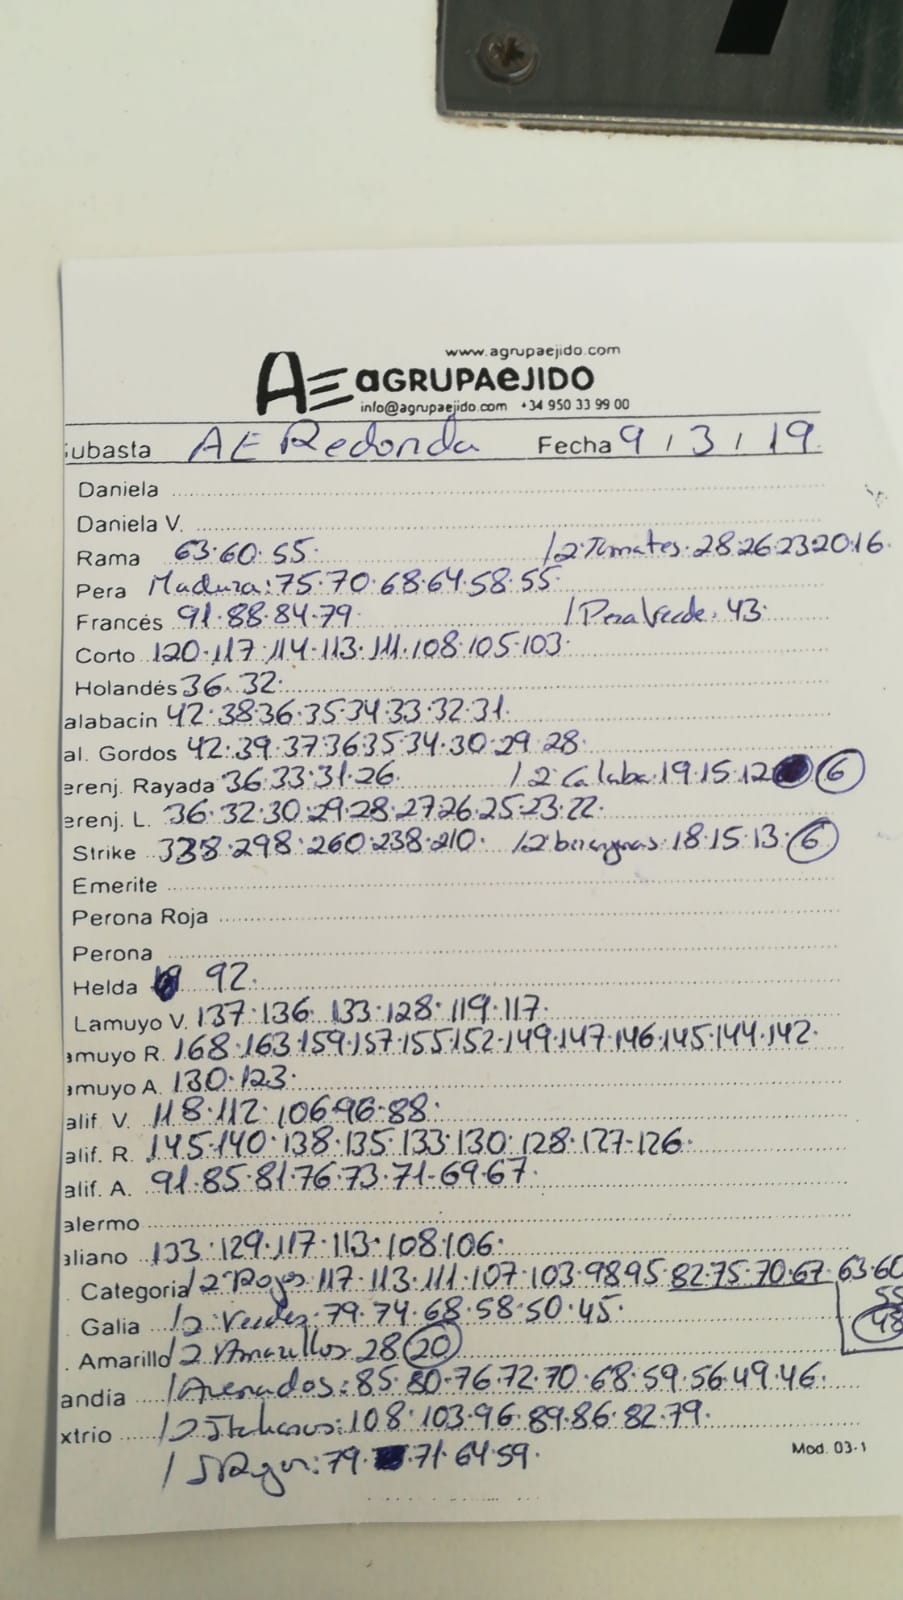 www.agrupaejido.com
AE aGRUPAeJIDO
info@agrupaejido.com +34 950 33 99 00
ubasta AE Redonda Fecha 9 / 3 / 19
Daniela
Daniela V.
Rama 63·60·55· /2 Tomates·28·26·23·20·16·
Pera Madura:75·70·68·64·58·55·
Francés 91·88·84·79· /Pera Verde·43·
Corto 120·117·114·113·111·108·105·103·
Holandés 36·32·
alabacin 42·38·36·35·34·33·32·31·
al. Gordos 42·39·37·36·35·34·30·29·28·
erenj. Rayada 36·33·31·26· /2 Calaba·19·15·12 6
erenj. L. 36·32·30·29·28·27·26·25·23·22·
Strike 338·298·260·238·210· /2 berengenas·18·15·13·6
Emerite
Perona Roja
Perona
Helda 92·
Lamuyo V. 137·136·133·128·119·117·
amuyo R. 168·163·159·157·155·152·149·147·146·145·144·142·
amuyo A. 130·123·
alif. V. 118·112·106·96·88·
alif. R. 145·140·138·135·133·130·128·127·126·
alif. A. 91·85·81·76·73·71·69·67·
alermo
aliano 133·129·117·113·108·106·
. Categoria /2 Rojos·117·113·111·107·103·98·95·82·75·70·67·63·60
55
. Galia /2 Verdes·79·74·68·58·50·45· 48
. Amarillo /2 Amarillos·28 20
andía /Asenados:85·80·76·72·70·68·59·56·49·46·
xtrio /2 Italianos:108·103·96·89·86·82·79·
79·71·64·59·
Mod. 03-1